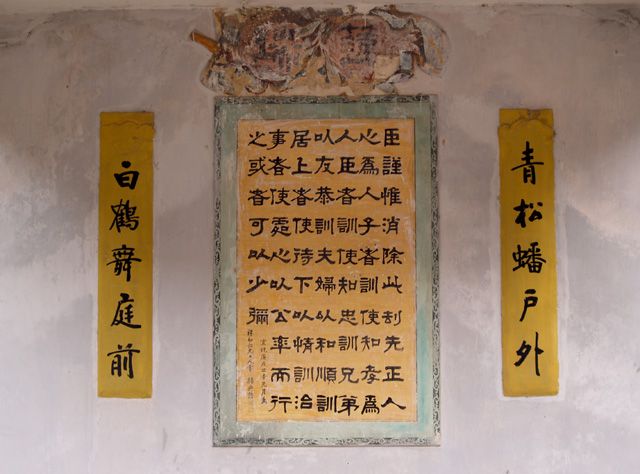 青松蟠戶外
臣謹惟消除此刦先正人
心為人子者訓使知孝為
人臣者訓使知忠訓兄弟
以友恭訓夫婦以和順訓
居上者使待下以情訓治
事者使處心以公率而行
之或者可以少彌
白鶴舞庭前